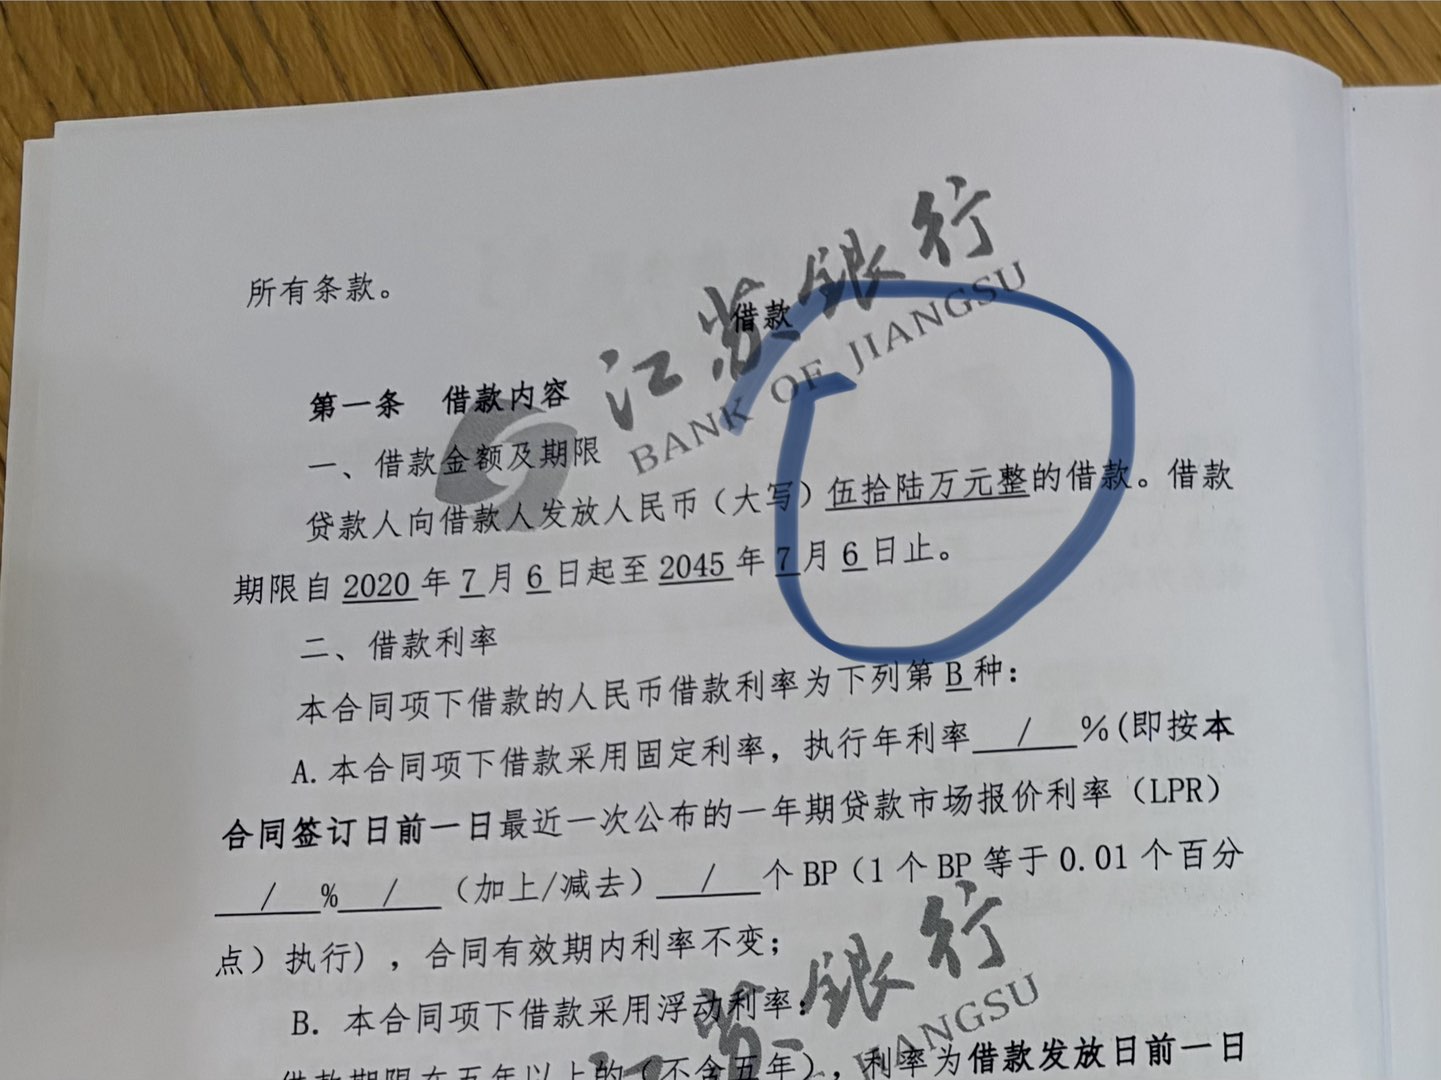 所有条款。
江苏银行
BANK OF JIANGSU
借款
第一条 借款内容
一、借款金额及期限
贷款人向借款人发放人民币（大写）伍拾陆万元整的借款。借款
期限自 2020 年 7 月 6 日起至 2045 年 7 月 6 日止。
二、借款利率
本合同项下借款的人民币借款利率为下列第 B 种：
A. 本合同项下借款采用固定利率，执行年利率 / %(即按本
合同签订日前一日最近一次公布的一年期贷款市场报价利率（LPR）
/ % / （加上/减去） / 个 BP（1 个 BP 等于 0.01 个百分
点）执行)，合同有效期内利率不变；
B. 本合同项下借款采用浮动利率：
江苏银行
JIANGSU
借款期限在五年以上的（不含五年），利率为借款发放日前一日